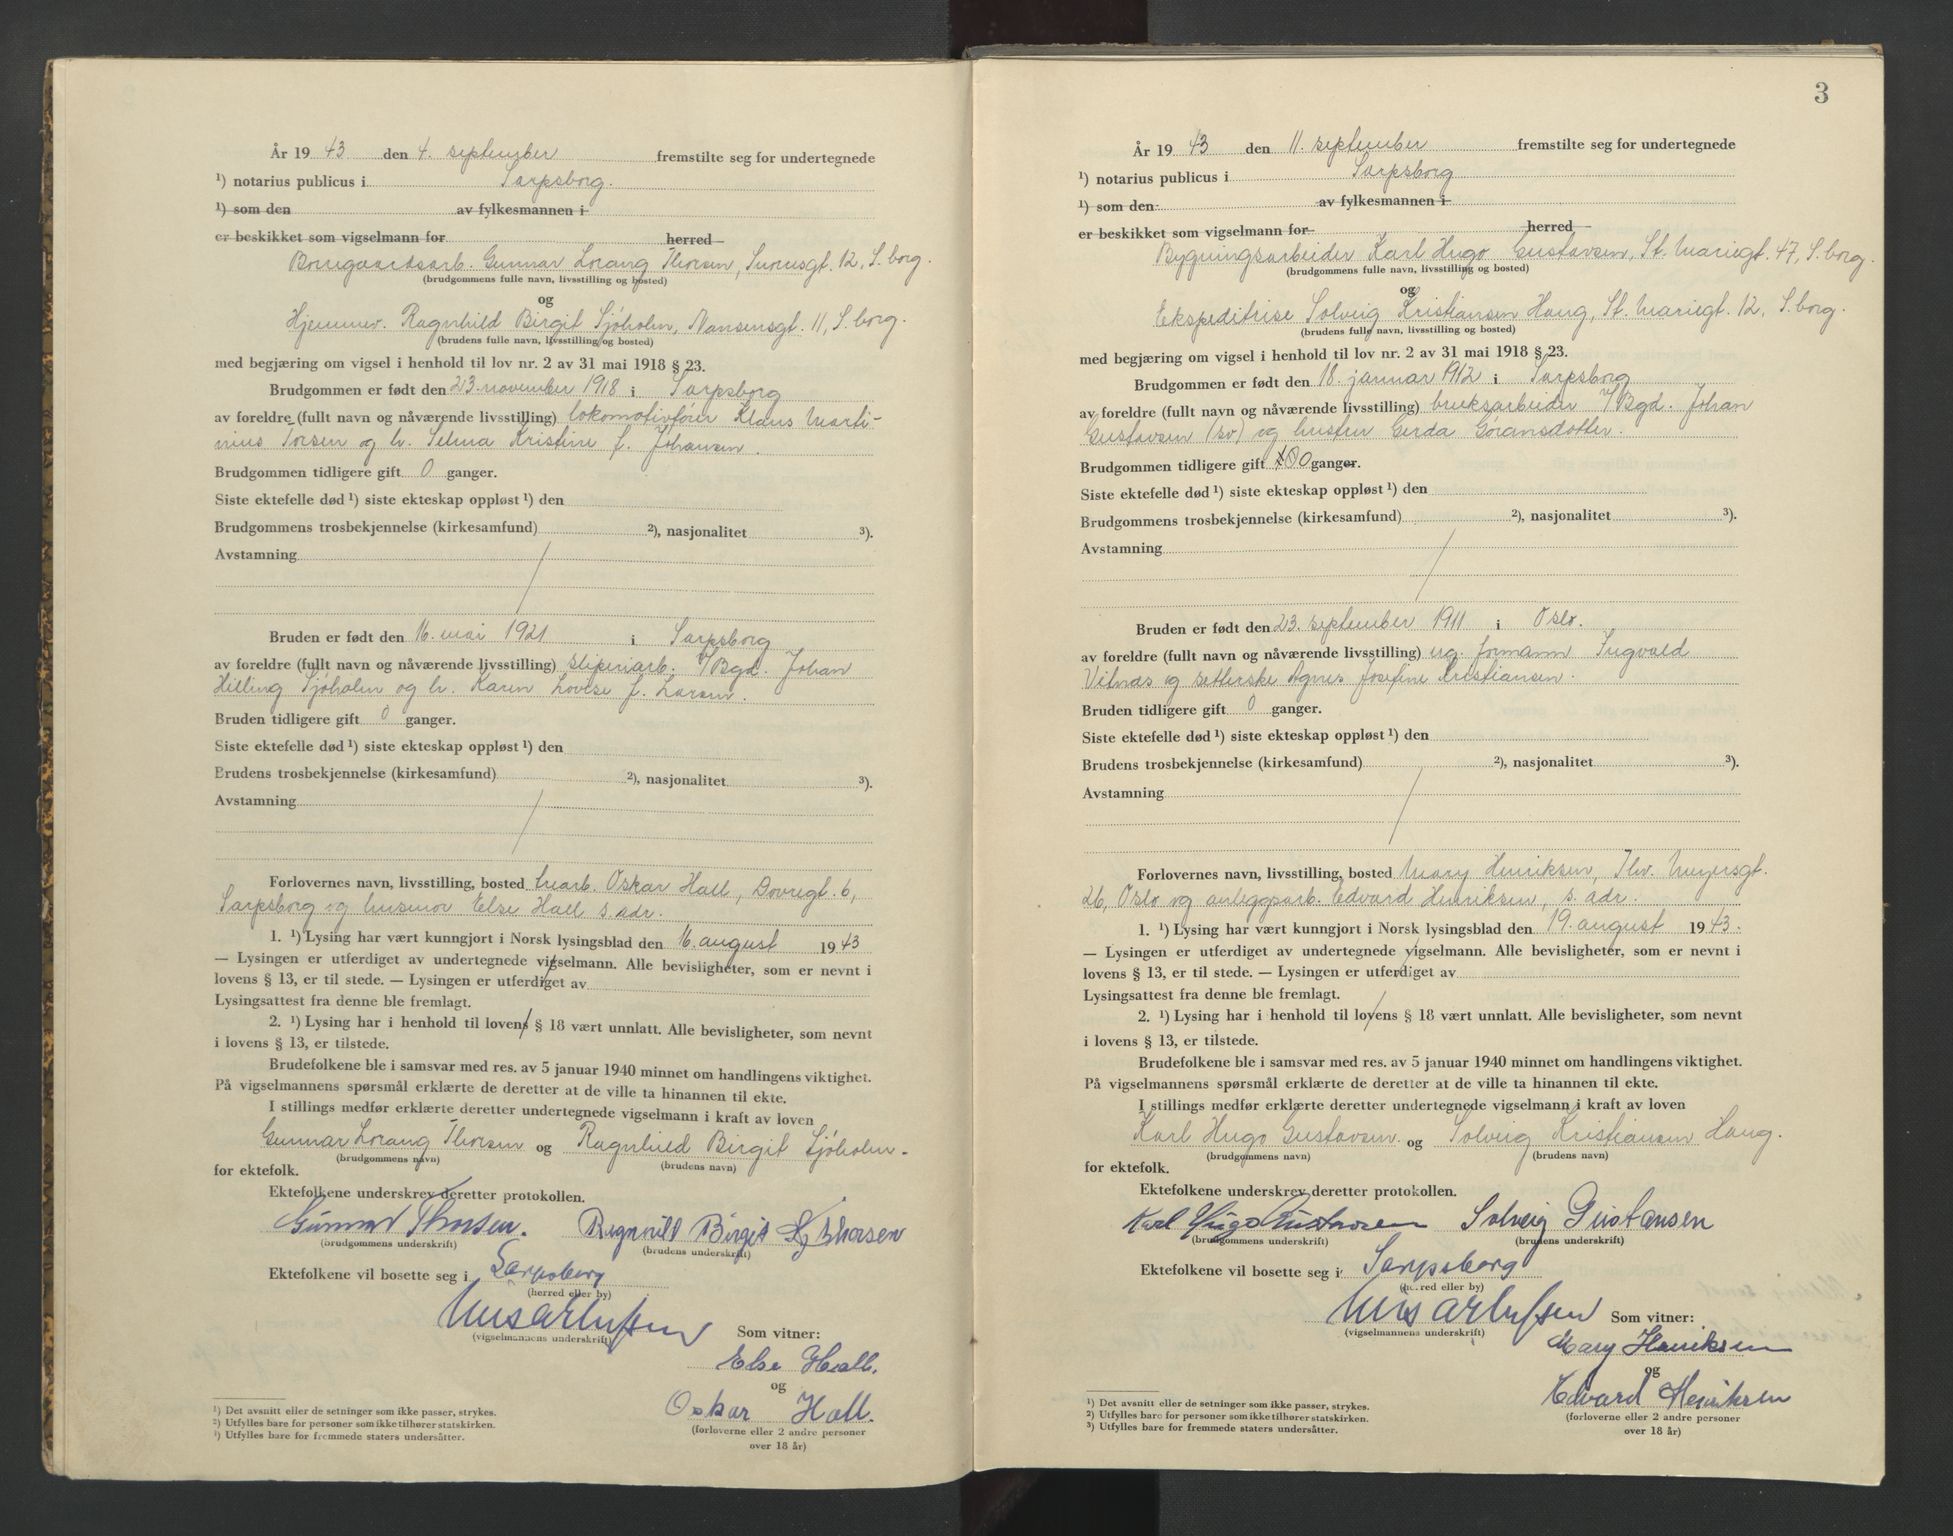 År 19 43 den 4. september fremstilte seg for undertegnede
¹) notarius publicus i Sarpsborg.
¹) som den av fylkesmannen i
er beskikket som vigselmann for herred
Borregaardsarb. Gunnar Lorang Thorsen, 12, S.borg.
(brudgommens fulle navn, livsstilling og bosted)
og
Hjemmev. Ragnhild Birgit Sjøholm, Nansensgt. 11, S.borg.
(brudens fulle navn, livsstilling og bosted)
med begjæring om vigsel i henhold til lov nr. 2 av 31 mai 1918 § 23.
Brudgommen er født den 23. november 1918 i Sarpsborg
av foreldre (fullt navn og nåværende livsstilling) lokomotivfører Klaus Marti-
nius Torsen og h. Telma Kristine f. Johansen.
Brudgommen tidligere gift 0 ganger.
Siste ektefelle død ¹) siste ekteskap oppløst ¹) den
Brudgommens trosbekjennelse (kirkesamfund) ²), nasjonalitet ³).
Avstamning
Bruden er født den 16. mai 1921 i Sarpsborg
av foreldre (fullt navn og nåværende livsstilling) sliperiarb. v/Bgd. Johan
Hilling Sjøholm og h. Karen Lovise f. Larsen.
Bruden tidligere gift 0 ganger.
Siste ektefelle død ¹) siste ekteskap oppløst ¹) den
Brudens trosbekjennelse (kirkesamfund) ²), nasjonalitet ³).
Avstamning
Forlovernes navn, livsstilling, bosted trearb. Oskar Hall, Dovregt. 6,
Sarpsborg og husmor Else Hall s. adr.
1. ¹) Lysing har vært kunngjort i Norsk lysingsblad den 16. august 19 43
— Lysingen er utferdiget av undertegnede vigselmann. Alle bevisligheter, som er nevnt i
lovens § 13, er til stede. — Lysingen er utferdiget av
Lysingsattest fra denne ble fremlagt.
2. ¹) Lysing har i henhold til lovens § 18 vært unnlatt. Alle bevisligheter, som nevnt
i lovens § 13, er tilstede.
Brudefolkene ble i samsvar med res. av 5 januar 1940 minnet om handlingens viktighet.
På vigselmannens spørsmål erklærte de deretter at de ville ta hinannen til ekte.
I stillings medfør erklærte deretter undertegnede vigselmann i kraft av loven
Gunnar Lorang Thorsen og Ragnhild Birgit Sjøholm.
(brudgommens navn) (brudens navn)
for ektefolk.
Ektefolkene underskrev deretter protokollen.
Gunnar Thorsen. Ragnhild Birgit Thorsen
(brudgommens underskrift) (brudens underskrift)
Ektefolkene vil bosette seg i Sarpsborg
(herred eller by)
(vigselmannens underskrift) Som vitner:
Else Hall.
og
Oskar Hall.
(forloverne eller 2 andre personer
over 18 år)
¹) Det avsnitt eller de setninger som ikke passer, strykes.
²) Utfylles bare for personer som ikke tilhører statskirken.
³) Utfylles bare for fremmede staters undersåtter.
3
År 19 43 den 11. september fremstilte seg for undertegnede
¹) notarius publicus i Sarpsborg
¹) som den av fylkesmannen i
er beskikket som vigselmann for herred
Bygningsarbeider Karl Hugo Gustavsen, St. Mariegt. 47, S.borg.
(brudgommens fulle navn, livsstilling og bosted)
og
Ekspeditrise Solveig Kristiansen Haug, St. Mariegt. 12, S.borg.
(brudens fulle navn, livsstilling og bosted)
med begjæring om vigsel i henhold til lov nr. 2 av 31 mai 1918 § 23.
Brudgommen er født den 18. januar 1912 i Sarpsborg
av foreldre (fullt navn og nåværende livsstilling) bruksarbeider v/Bgd. Johan
Gustavsen (sv) og hustru Gerda Göransdotter.
Brudgommen tidligere gift 0 ganger.
Siste ektefelle død ¹) siste ekteskap oppløst ¹) den
Brudgommens trosbekjennelse (kirkesamfund) ²), nasjonalitet ³).
Avstamning
Bruden er født den 23. september 1911 i Oslo.
av foreldre (fullt navn og nåværende livsstilling) ug. formann Ingvald
Vilnas og setterske Agnes Josefine Kristiansen.
Bruden tidligere gift 0 ganger.
Siste ektefelle død ¹) siste ekteskap oppløst ¹) den
Brudens trosbekjennelse (kirkesamfund) ²), nasjonalitet ³).
Avstamning
Forlovernes navn, livsstilling, bosted Mary Henriksen, Thv. Meyersgt.
26, Oslo og anleggsarb. Edvard Henriksen, s. adr.
1. ¹) Lysing har vært kunngjort i Norsk lysingsblad den 19. august 19 43.
— Lysingen er utferdiget av undertegnede vigselmann. Alle bevisligheter, som er nevnt i
lovens § 13, er til stede. — Lysingen er utferdiget av
Lysingsattest fra denne ble fremlagt.
2. ¹) Lysing har i henhold til lovens § 18 vært unnlatt. Alle bevisligheter, som nevnt
i lovens § 13, er tilstede.
Brudefolkene ble i samsvar med res. av 5 januar 1940 minnet om handlingens viktighet.
På vigselmannens spørsmål erklærte de deretter at de ville ta hinannen til ekte.
I stillings medfør erklærte deretter undertegnede vigselmann i kraft av loven
Karl Hugo Gustavsen og Solveig Kristiansen Haug.
(brudgommens navn) (brudens navn)
for ektefolk.
Ektefolkene underskrev deretter protokollen.
Karl Hugo Gustavsen Solveig Gustavsen
(brudgommens underskrift) (brudens underskrift)
Ektefolkene vil bosette seg i Sarpsborg
(herred eller by)
(vigselmannens underskrift) Som vitner:
Mary Henriksen
og
Edvard Henriksen
(forloverne eller 2 andre personer
over 18 år)
¹) Det avsnitt eller de setninger som ikke passer, strykes.
²) Utfylles bare for personer som ikke tilhører statskirken.
³) Utfylles bare for fremmede staters undersåtter.